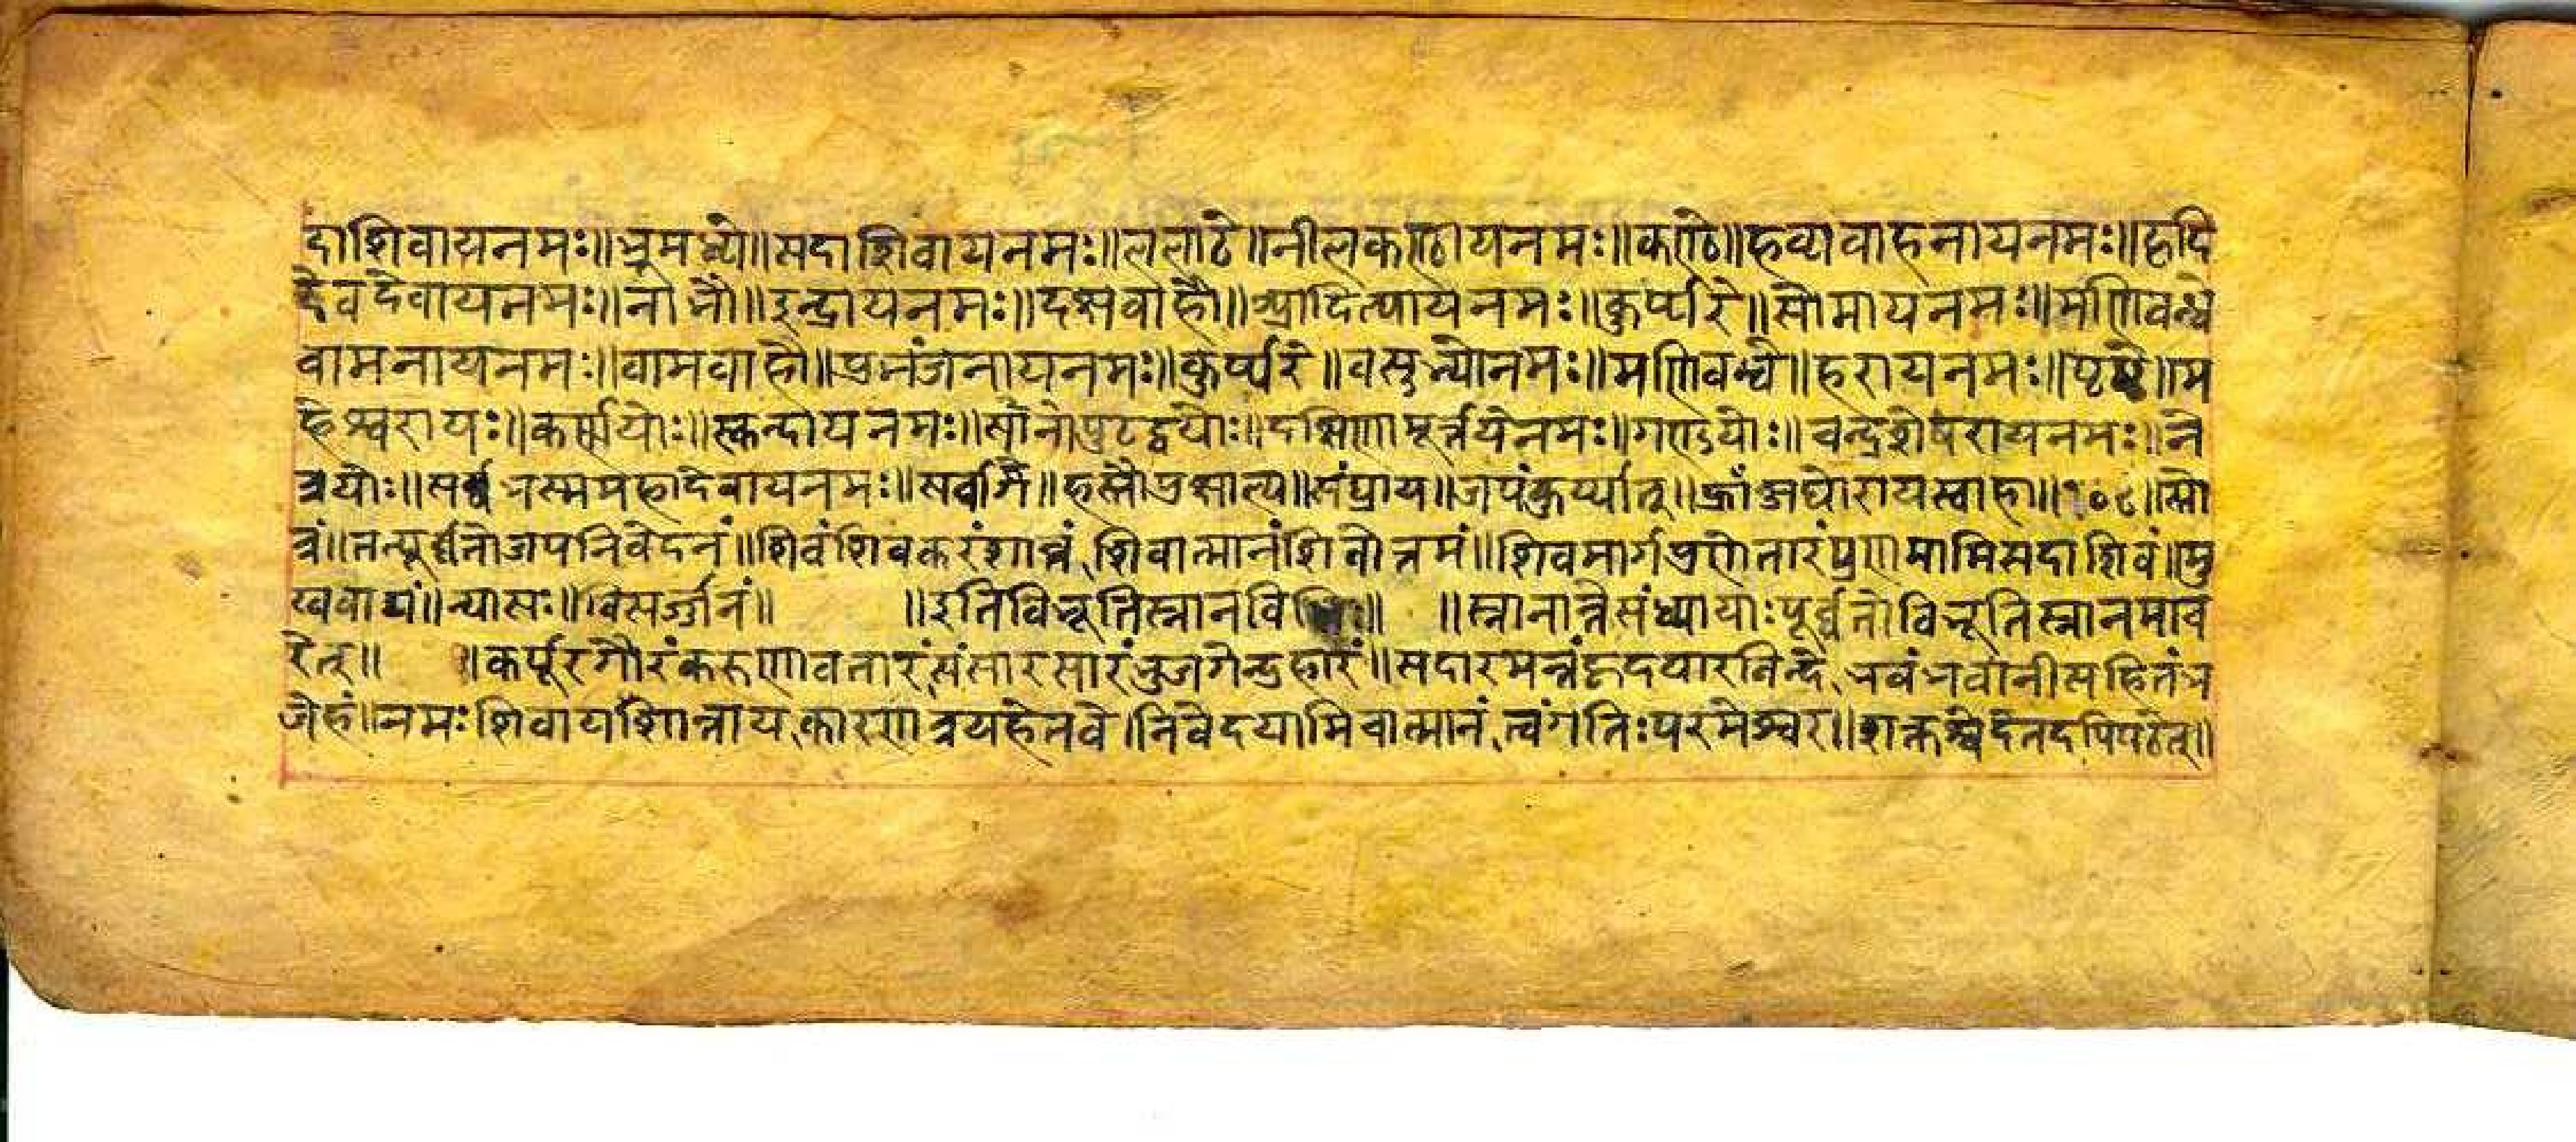 दाशिवायनमः॥भ्रुमध्ये॥सदाशिवायनमः॥ललाटे॥नीलकण्ठायनमः॥कण्ठे॥हव्यवाहनायनमः॥हृदि
देवदेवायनमः॥नाभौ॥इन्द्रायनमः॥दक्षवाहौ॥आदित्यायनमः॥कुर्प्परे॥सोमायनमः॥मणिवन्धे
वामनायनमः॥वामवाहौ॥प्रभंजनायनमः॥कुर्प्परे॥वसुभ्योनमः॥मणिवन्धे॥हरायनमः॥पृष्टे॥म
हेश्वरायः॥कर्ण्णयोः॥स्कन्दायनमः॥सांनोपुटद्वयोः॥दक्षिणामूर्त्तयेनमः॥गण्डयोः॥चन्द्रशेषरायनमः॥ने
त्रयोः॥सर्व्वभस्ममहादेवायनमः॥सर्वांगे॥हस्तौप्रक्षाल्य॥संप्राय॥जपंकुर्य्यात्॥क्रांअघोरायस्वाहा॥१०८॥स्तो
त्रं॥तत्पूर्व्वतोजपनिवेदनं॥शिवंशिवकरंशान्तं,शिवात्मानंशिवोत्तमं॥शिवमार्गप्रणेतारंप्रणमामिसदाशिवं॥मु
खवाद्यं॥न्यासः॥विसर्ज्जनं॥ ॥इतिविभूतिस्नानविधिः॥ ॥स्नानान्तेसंध्यायाःपूर्व्वतोविभूतिस्नानमाच
रेत्॥ ॥कर्पूरगौरंकरुणावतारं,संसारसारंभुजगेन्द्रहारं॥सदारमन्तंहृदयारविन्दे,भवंभवानीसहितंभ
जेहं॥नमःशिवायशान्ताय,कारणत्रयहेतवे।निवेदयामिचात्मानं,त्वंगतिःपरमेश्वर॥शक्तश्चेदेतदपिपठेत्॥